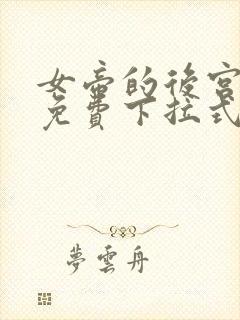 女帝的後宮
免費下拉式
夢雲舟